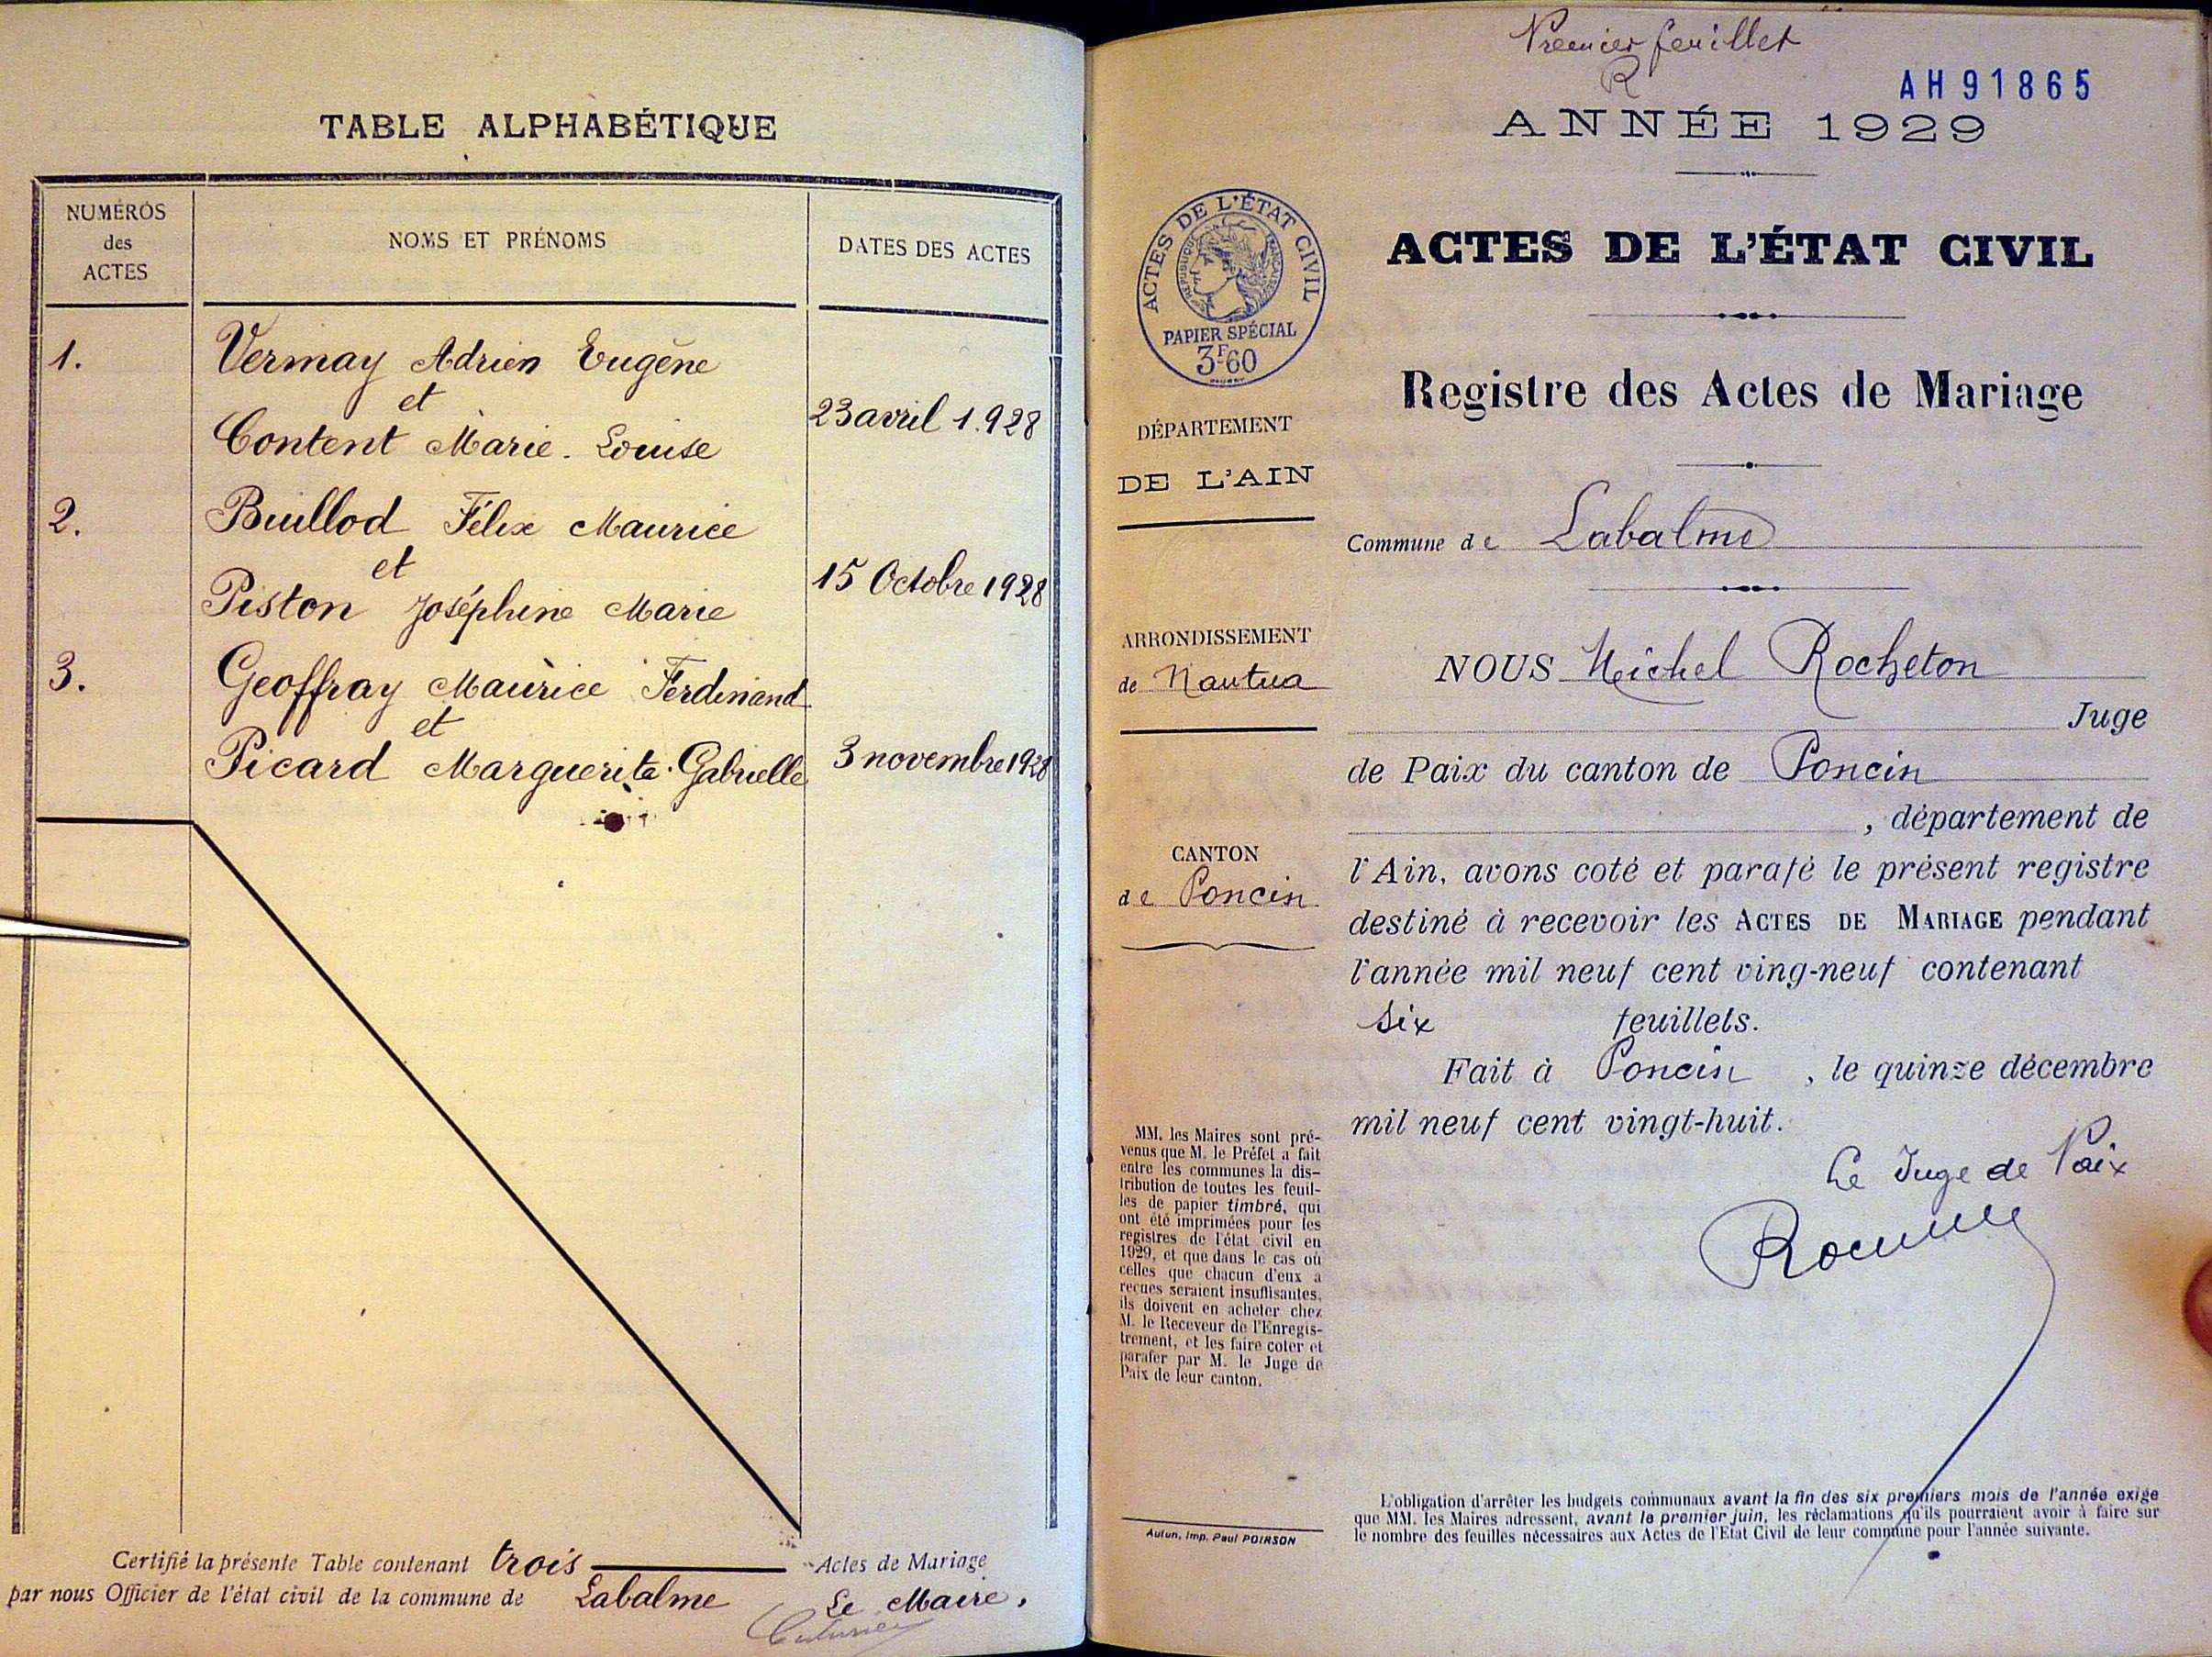 TABLE ALPHABÉTIQUE
NUMÉROS
des
ACTES
NOMS ET PRÉNOMS
DATES DES ACTES
1.
Vermay Adrien Eugène
et
Content Marie. Louise
23 avril 1.928
2.
Buillod Félix Maurice
et
Piston Joséphine Marie
15 Octobre 1928
3.
Geoffray Maurice Ferdinand
et
Picard Marguerite. Gabrielle
3 novembre 1928
Certifié la présente Table contenant trois Actes de Mariage
par nous Officier de l'état civil de la commune de Labalme Le Maire,
Premier feuillet
R
AH 91865
ANNÉE 1929
ACTES DE L'ÉTAT CIVIL
RÉPUBLIQUE FRANÇAISE
PAPIER SPÉCIAL
3F60
ACTES DE L'ÉTAT CIVIL
Registre des Actes de Mariage
DÉPARTEMENT
DE L'AIN
Commune de Labalme
ARRONDISSEMENT
de Nantua
NOUS Michel Rocheton
Juge
de Paix du canton de Poncin
, département de
CANTON
de Poncin
l'Ain, avons coté et parafé le présent registre
destiné à recevoir les ACTES DE MARIAGE pendant
l'année mil neuf cent ving-neuf contenant
six feuillets.
Fait à Poncin, le quinze décembre
mil neuf cent vingt-huit.
Le Juge de Paix
MM. les Maires sont pré-
venus que M. le Préfet a fait
entre les communes la dis-
tribution de toutes les feuil-
les de papier timbré, qui
ont été imprimées pour les
registres de l'état civil en
1929, et que dans le cas où
celles que chacun d'eux a
reçues seraient insuffisantes,
ils doivent en acheter chez
M. le Receveur de l'Enregis-
trement, et les faire coter et
parafer par M. le Juge de
Paix de leur canton.
Autun, Imp. Paul POIRSON
L'obligation d'arrêter les budgets communaux avant la fin des six premiers mois de l'année exige
que MM. les Maires adressent, avant le premier juin, les réclamations qu'ils pourraient avoir à faire sur
le nombre des feuilles nécessaires aux Actes de l'Etat Civil de leur commune pour l'année suivante.